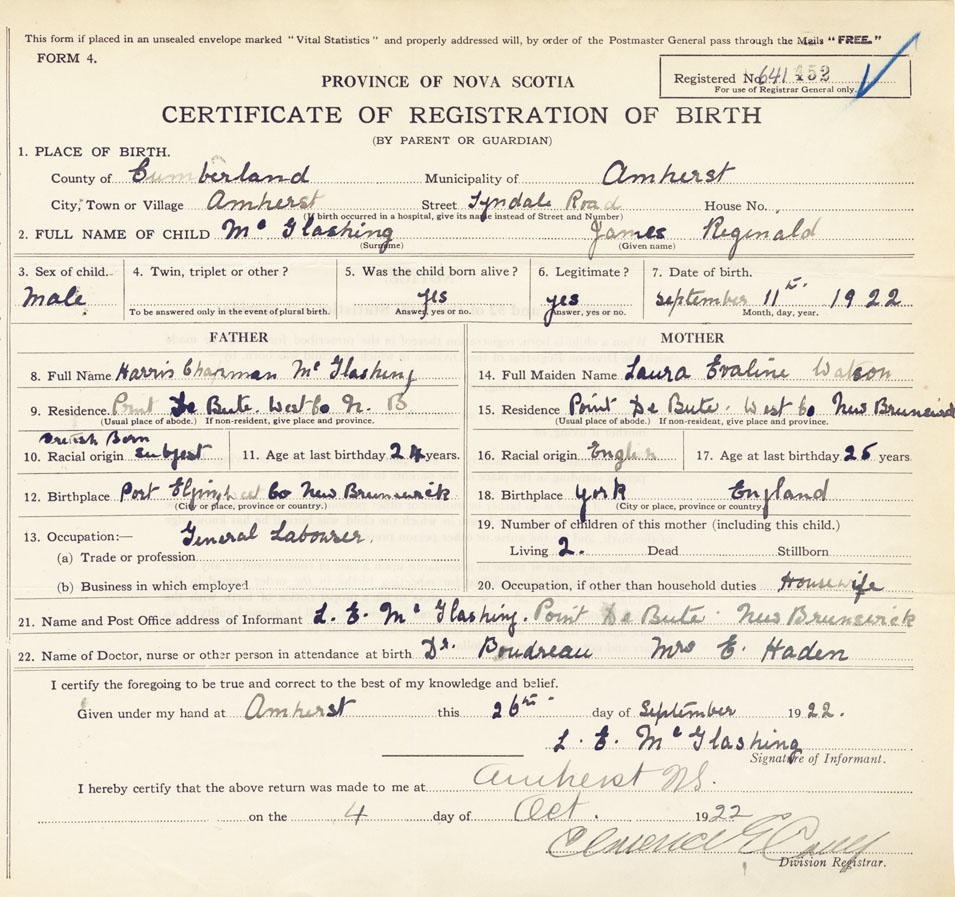 This form if placed in an unsealed envelope marked "Vital Statistics" and properly addressed will, by order of the Postmaster General pass through the Mails "FREE."
FORM 4.
PROVINCE OF NOVA SCOTIA
Registered No. 641 452
For use of Registrar General only.
CERTIFICATE OF REGISTRATION OF BIRTH
(BY PARENT OR GUARDIAN)
1. PLACE OF BIRTH.
County of Cumberland Municipality of Amherst
City, Town or Village Amherst Street Tyndale Road House No.
(If birth occurred in a hospital, give its name instead of Street and Number)
2. FULL NAME OF CHILD Mc Glashing James Reginald
(Surname) (Given name)
3. Sex of child. 4. Twin, triplet or other? 5. Was the child born alive? 6. Legitimate? 7. Date of birth.
Male. yes yes september 11th 1922
To be answered only in the event of plural birth. Answer, yes or no. Answer, yes or no. Month, day, year.
FATHER MOTHER
8. Full Name Harris Chapman Mc Glashing 14. Full Maiden Name Laura Evaline Watson
9. Residence. Point De Bute. West Co N. B 15. Residence Point De Bute. West Co New Brunswick
(Usual place of abode.) If non-resident, give place and province. (Usual place of abode.) If non-resident, give place and province.
British Born
10. Racial origin subject 11. Age at last birthday 24 years. 16. Racial origin English 17. Age at last birthday 26 years
12. Birthplace Port Elgin West Co New Brunswick 18. Birthplace york England
(City or place, province or country.) (City or place, province or country)
13. Occupation:— General Labourer. 19. Number of children of this mother (including this child.)
(a) Trade or profession Living 2. Dead Stillborn
(b) Business in which employed 20. Occupation, if other than household duties Housewife
21. Name and Post Office address of Informant L. E. Mc Glashing. Point De Bute. New Brunswick
22. Name of Doctor, nurse or other person in attendance at birth Dr. Boudreau Mrs E. Haden
I certify the foregoing to be true and correct to the best of my knowledge and belief.
Given under my hand at Amherst this 26th day of September 1922.
L. E. Mc Glashing
Signature of Informant.
I hereby certify that the above return was made to me at Amherst N.S.
on the 4 day of Oct. 1922
Division Registrar.